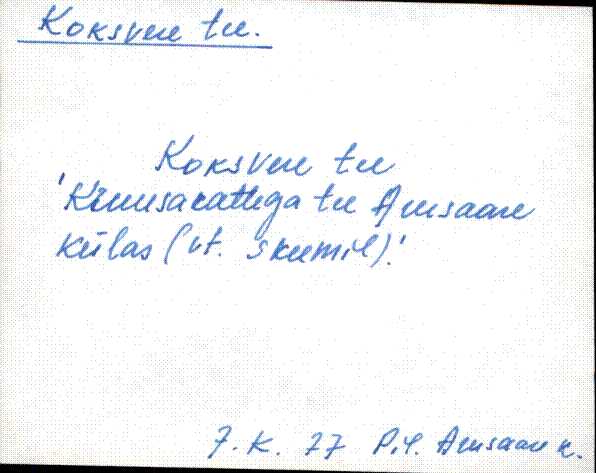 Koksvere tee.
Koksvere tee
'Kruusakattega tee Arusaare
külas (vt. skeemil).'
J. K. 77 Pil. Arusaare k.